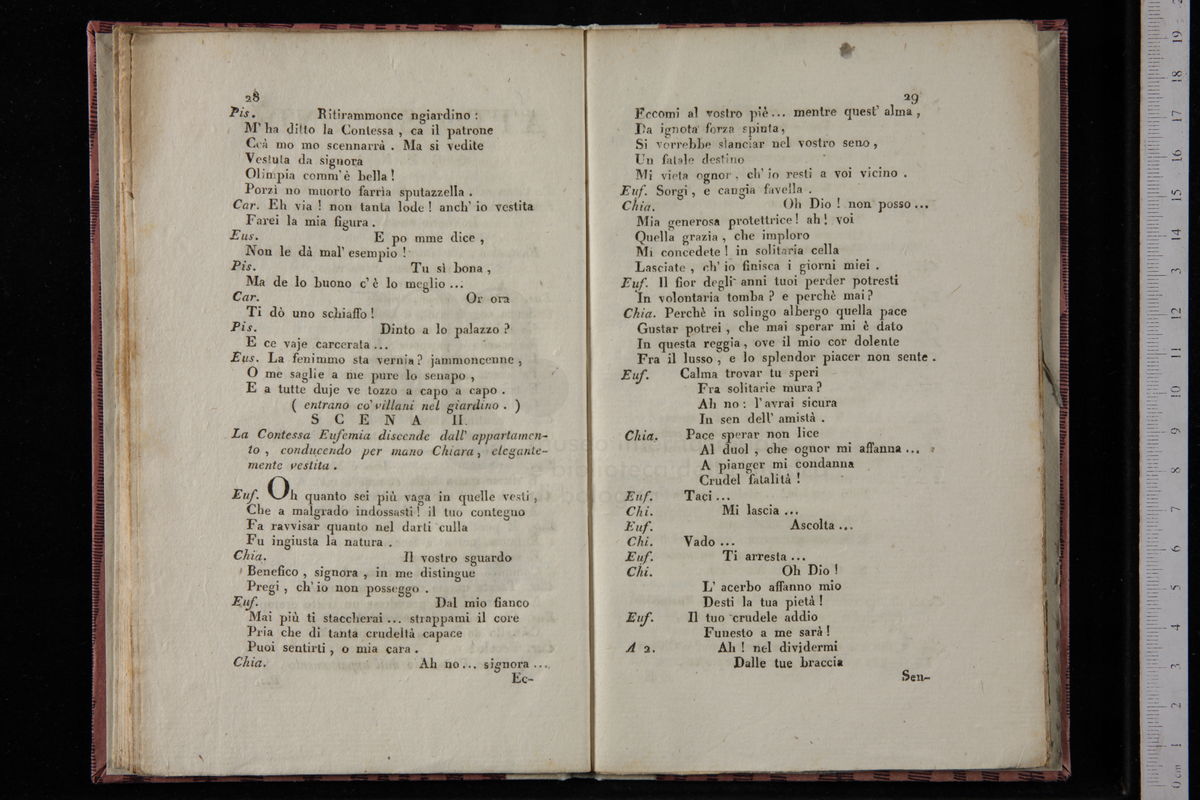 28
Pis. Ritirammonce ngiardino :
M' ha ditto la Contessa , ca il patrone
Ccà mo mo scennarrà . Ma si vedite
Vestuta da signora
Olimpia comm' è bella !
Porzì no muorto farrìa sputazzella .
Car. Eh via ! non tanta lode ! anch' io vestita
Farei la mia figura .
Eus. E po mme dice ,
Non le dà mal' esempio !
Pis. Tu sì bona ,
Ma de lo buono c' è lo meglio ...
Car. Or ora
Ti dò uno schiaffo !
Pis. Dinto a lo palazzo ?
E ce vaje carcerata ...
Eus. La fenimmo sta vernia ? jammoncenne ,
O me saglie a me pure lo senapo ,
E a tutte duje ve tozzo a capo a capo .
( entrano co' villani nel giardino . )
S C E N A II.
La Contessa Eufemia discende dall' appartamen-
to , conducendo per mano Chiara , elegante-
mente vestita .
Euf. Oh quanto sei più vaga in quelle vesti ,
Che a malgrado indossasti ! il tuo contegno
Fa ravvisar quanto nel darti culla
Fu ingiusta la natura .
Chia. Il vostro sguardo
Benefico , signora , in me distingue
Pregi , ch' io non posseggo .
Euf. Dal mio fianco
Mai più ti staccherai ... strappami il core
Pria che di tanta crudeltà capace
Puoi sentirti , o mia cara .
Chia. Ah no ... signora ...
Ec-
29
Eccomi al vostro piè ... mentre quest' alma ,
Da ignota forza spinta ,
Si vorrebbe slanciar nel vostro seno ,
Un fatale destino
Mi vieta ognor , ch' io resti a voi vicino .
Euf. Sorgi , e cangia favella .
Chia. Oh Dio ! non posso ...
Mia generosa protettrice ! ah ! voi
Quella grazia , che imploro
Mi concedete ! in solitaria cella
Lasciate , ch' io finisca i giorni miei .
Euf. Il fior degli anni tuoi perder potresti
In volontaria tomba ? e perchè mai ?
Chia. Perchè in solingo albergo quella pace
Gustar potrei , che mai sperar mi è dato
In questa reggia , ove il mio cor dolente
Fra il lusso , e lo splendor piacer non sente .
Euf. Calma trovar tu speri
Fra solitarie mura ?
Ah no : l' avrai sicura
In sen dell' amistà .
Chia. Pace sperar non lice
Al duol , che ognor mi affanna ...
A pianger mi condanna
Crudel fatalità !
Euf. Taci ...
Chi. Mi lascia ...
Euf. Ascolta ...
Chi. Vado ...
Euf. Ti arresta ...
Chi. Oh Dio !
L' acerbo affanno mio
Desti la tua pietà !
Euf. Il tuo crudele addio
Funesto a me sarà !
A 2. Ah ! nel dividermi
Dalle tue braccia
Sen-